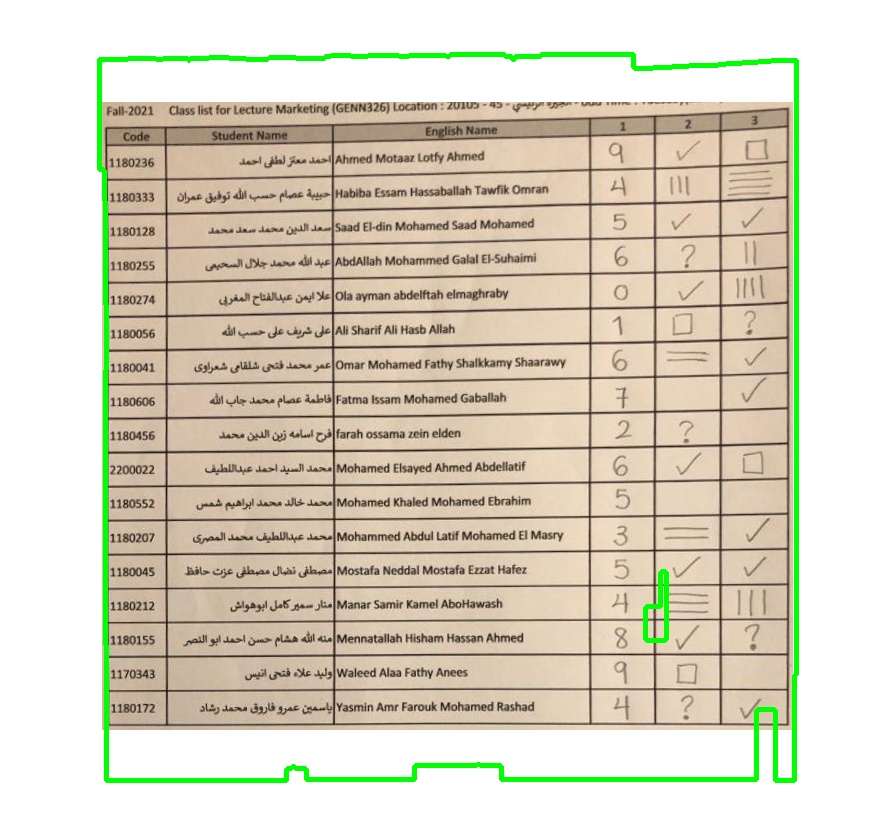 Fall-2021 Class list for Lecture Marketing (GENN326) Location : 20105 - 45 -
Code Student Name English Name 1 2 3
1180236 احمد معتز لطفى احمد Ahmed Motaaz Lotfy Ahmed 9 ✓ □
1180333 حبيبة عصام حسب الله توفيق عمران Habiba Essam Hassaballah Tawfik Omran 4 |||
1180128 سعد الدين محمد سعد محمد Saad El-din Mohamed Saad Mohamed 5 ✓ ✓
1180255 عبد الله محمد جلال السحيمى AbdAllah Mohammed Galal El-Suhaimi 6 ? ||
1180274 علا ايمن عبدالفتاح المغربى Ola ayman abdelftah elmaghraby 0 ✓ ||||
1180056 على شريف على حسب الله Ali Sharif Ali Hasb Allah 1 □ ?
1180041 عمر محمد فتحى شلقامى شعراوى Omar Mohamed Fathy Shalkkamy Shaarawy 6 = ✓
1180606 فاطمة عصام محمد جاب الله Fatma Issam Mohamed Gaballah 7 ✓
1180456 فرح اسامه زين الدين محمد farah ossama zein elden 2 ?
2200022 محمد السيد احمد عبداللطيف Mohamed Elsayed Ahmed Abdellatif 6 ✓ □
1180552 محمد خالد محمد ابراهيم شمس Mohamed Khaled Mohamed Ebrahim 5
1180207 محمد عبداللطيف محمد المصرى Mohammed Abdul Latif Mohamed El Masry 3 = ✓
1180045 مصطفى نضال مصطفى عزت حافظ Mostafa Neddal Mostafa Ezzat Hafez 5 ✓ ✓
1180212 منار سمير كامل ابوهواش Manar Samir Kamel AboHawash 4 |||
1180155 منه الله هشام حسن احمد ابو النصر Mennatallah Hisham Hassan Ahmed 8 ✓ ?
1170343 وليد علاء فتحى انيس Waleed Alaa Fathy Anees 9 □
1180172 ياسمين عمرو فاروق محمد رشاد Yasmin Amr Farouk Mohamed Rashad 4 ? ✓